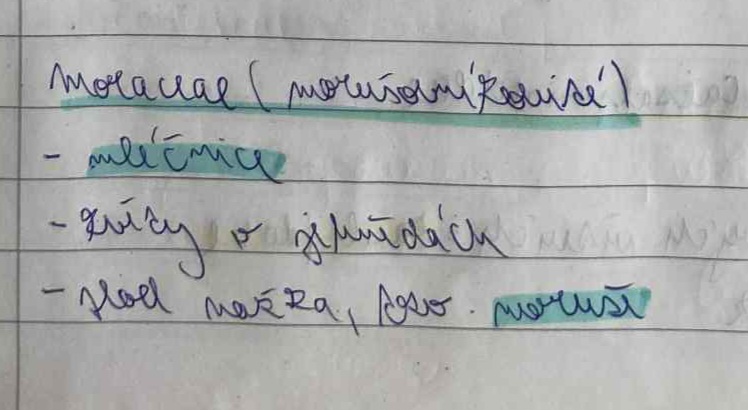 Moraceae (morušovníkovité)
- mléčnice
- květy v jehnědách
- plod nažka, pso. moruše